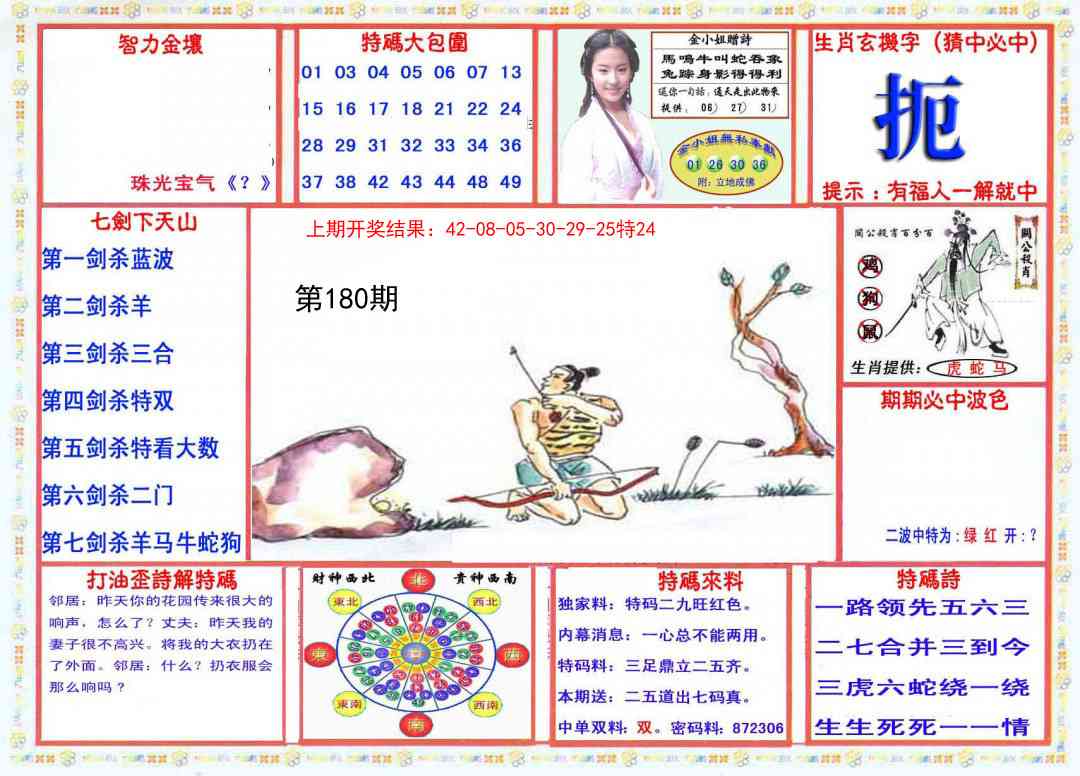 智力金壤
珠光宝气《？》
特碼大包圍
01 03 04 05 06 07 13
15 16 17 18 21 22 24
28 29 31 32 33 34 36
37 38 42 43 44 48 49
金小姐贈詩
馬鳴牛叫蛇吞象
兔踪身影得得利
送你一句話，通天走出此物來
提供：06）27）31）
金小姐無私奉獻
01 26 30 36
附：立地成佛
生肖玄機字（猜中必中）
扼
提示：有福人一解就中
七劍下天山
第一剑杀蓝波
第二剑杀羊
第三剑杀三合
第四剑杀特双
第五剑杀特看大数
第六剑杀二门
第七剑杀羊马牛蛇狗
上期开奖结果：42-08-05-30-29-25特24
第180期
關公殺肖百分百
關公殺肖
鸡
狗
鼠
生肖提供：虎 蛇 马
期期必中波色
二波中特为：绿 红 开：？
打油歪詩解特碼
邻居：昨天你的花园传来很大的
响声，怎么了？丈夫：昨天我的
妻子很不高兴。将我的大衣扔在
了外面。邻居：什么？扔衣服会
那么响吗？
財神西北 貴神西南
北
東北 西北
東 西
東南 西南
南
特碼來料
独家料：特码二九旺红色。
内幕消息：一心总不能两用。
特码料：三足鼎立二五齐。
本期送：二五道出七码真。
中单双料：双。密码料：872306
特碼詩
一路领先五六三
二七合并三到今
三虎六蛇绕一绕
生生死死一一情